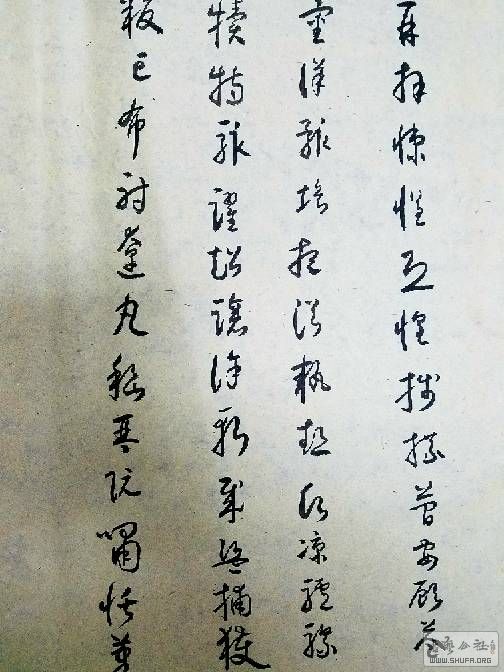 再拜悚懼恐惶牋牒簡要顧答
審詳骸垢想浴執熱願涼驢騾
犢特駭躍超驤誅斬賊盜捕獲
叛亡布射遼丸嵇琴阮嘯恬筆
WWW.SHUFA.ORG